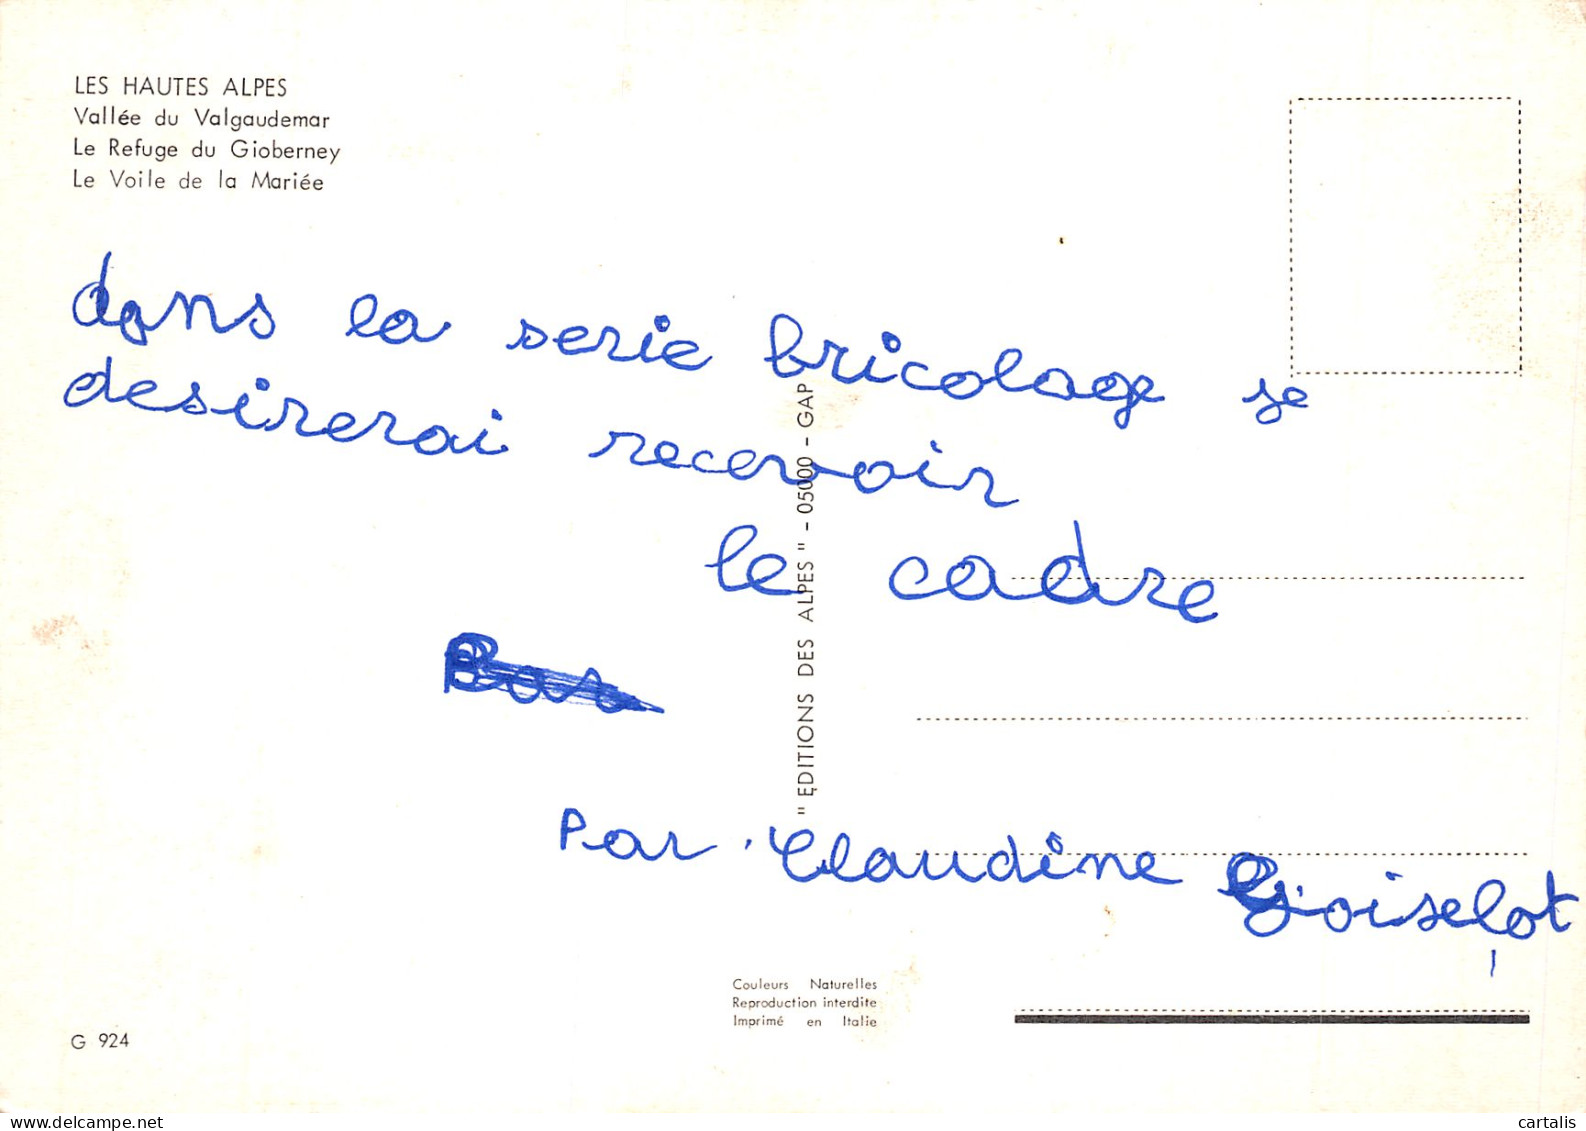 LES HAUTES ALPES
Vallée du Valgaudemar
Le Refuge du Gioberney
Le Voile de la Mariée
dans la serie bricolage je
desirerai recevoir
le cadre
Par Claudine Goiselot
"EDITIONS DES ALPES" - 05000 - GAP
Couleurs Naturelles
Reproduction interdite
Imprimé en Italie
G 924
delcampe.net
cartalis